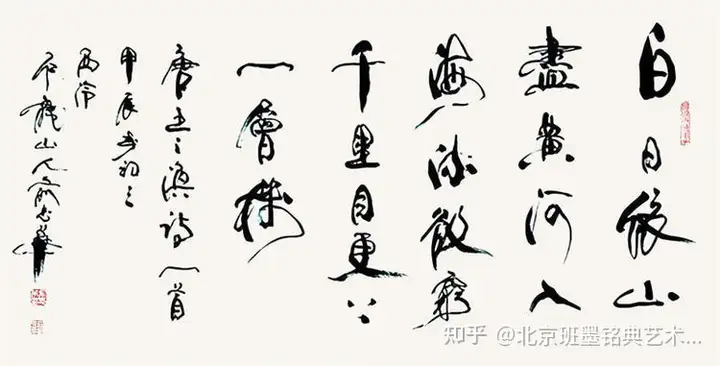 白日依山
盡黃河入
海流欲窮
千里目更上
一層樓
唐王之渙詩一首
甲辰
西泠
山人
知乎 @北京班墨铭典艺术...